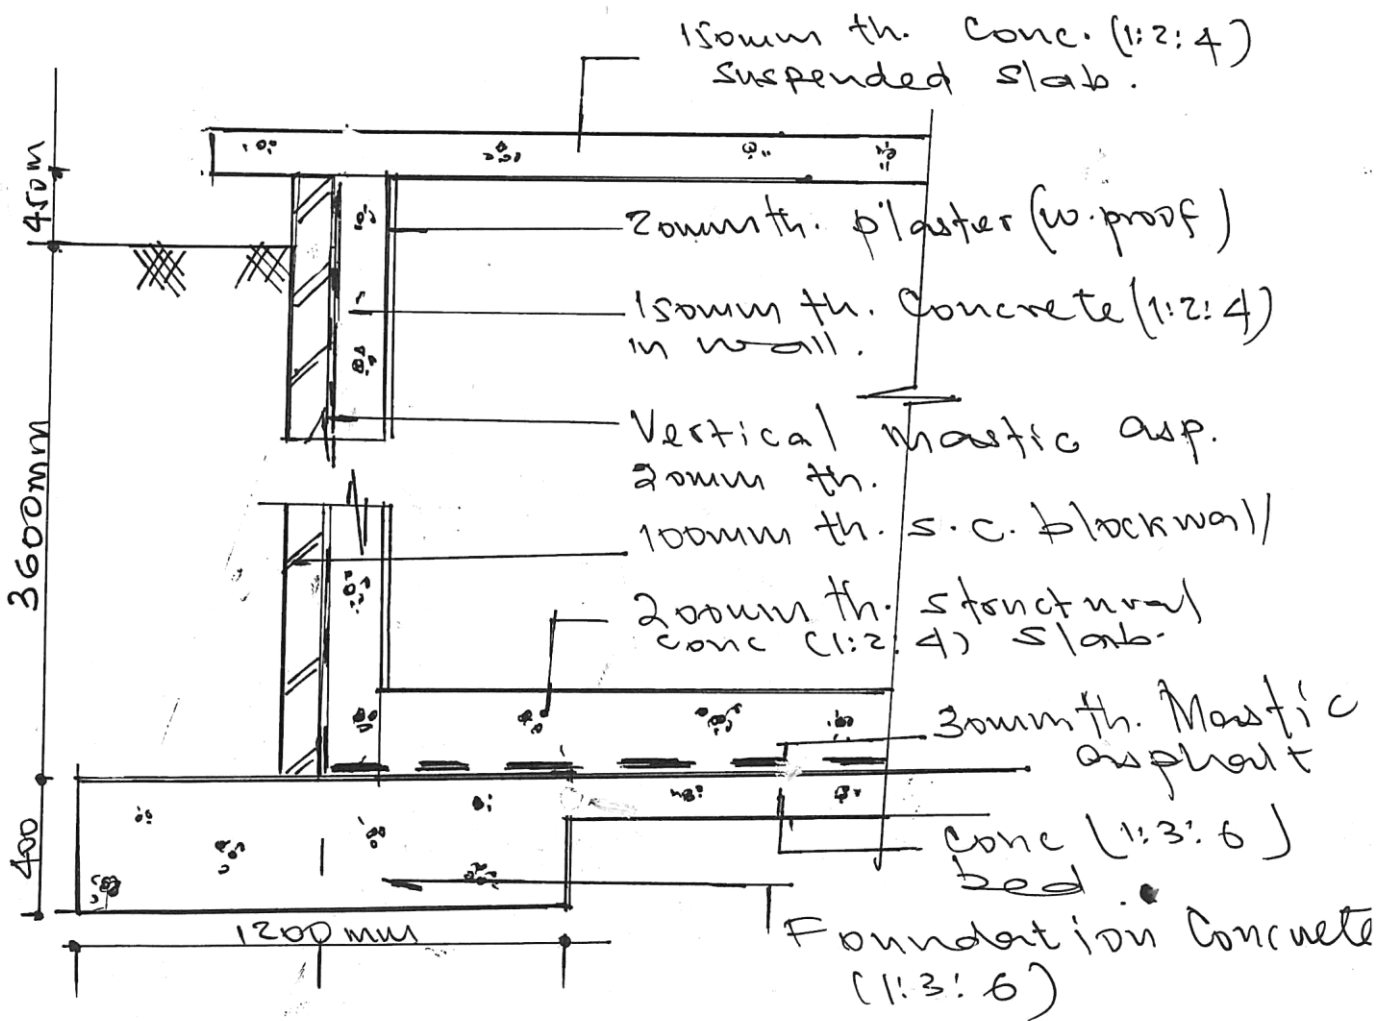 150mm th. Conc. (1:2:4)
suspended slab.
450m
20mmth. plaster (w.proof)
150mm th. Concrete (1:2:4)
in wall.
Vertical mastic asp.
20mm th.
100mm th. s.c. blockwall
3600mm
200mm th. structural
conc (1:2:4) slab.
30mm th. Mastic
asphalt
400
conc (1:3:6)
bed
1200mm
Foundation Concrete
(1:3:6)